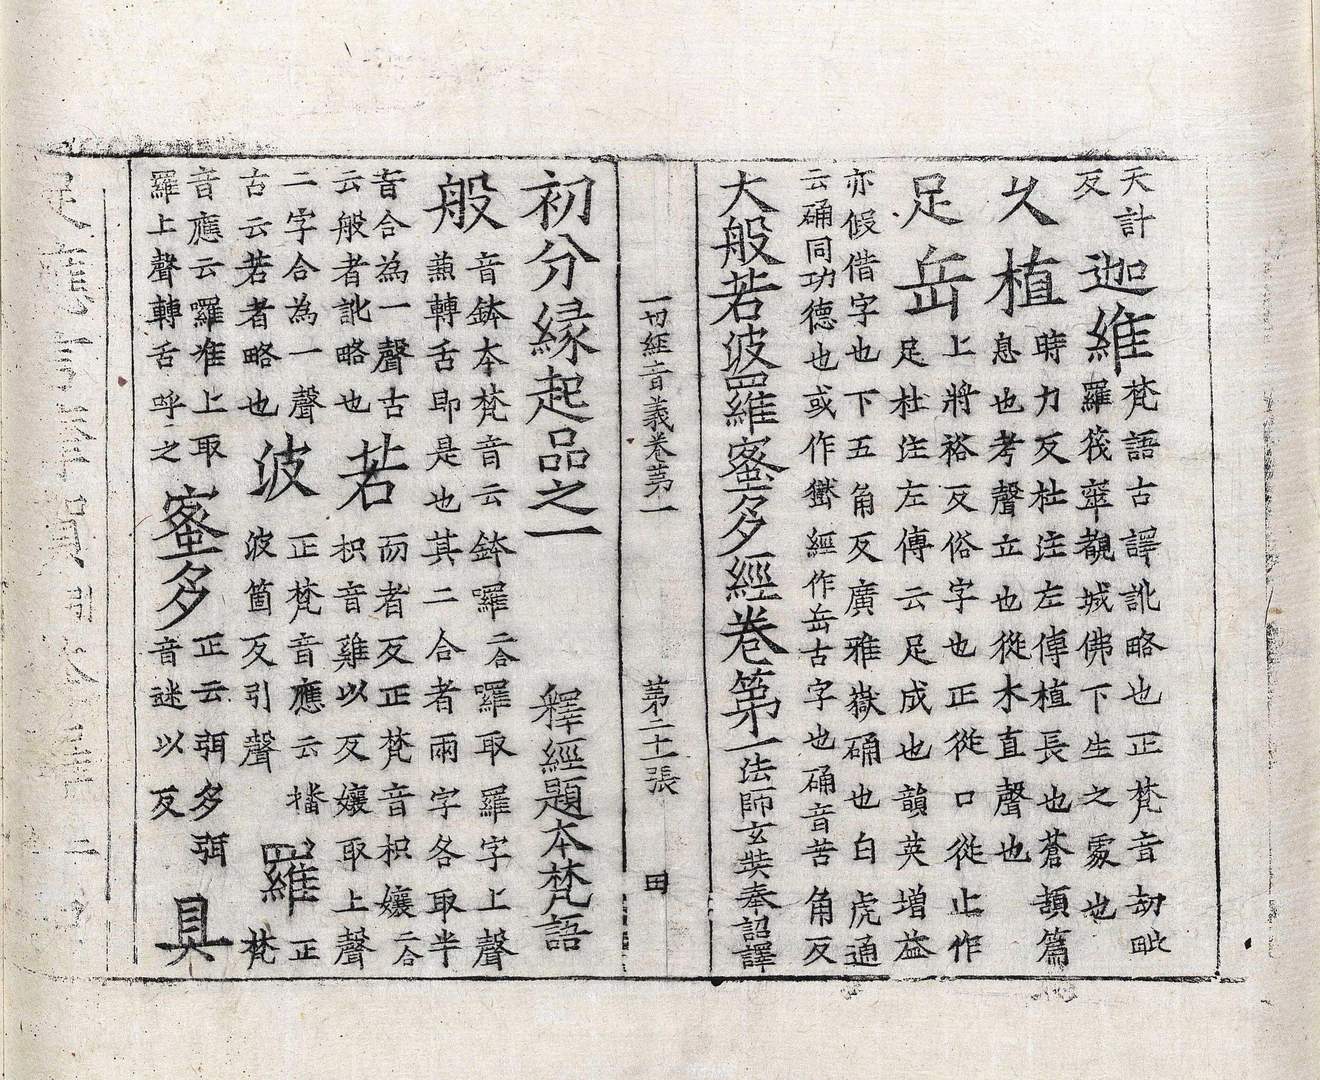 天計
反
迦維
梵語古譯訛略也正梵音劫毗
羅筏窣覩城佛下生之處也
久植
時力反杜注左傳植長也蒼頡篇
息也考聲立也從木直聲也
足岳
上將裕反俗字也正從口從止作
足杜注左傳云足成也韻英增益
亦假借字也下五角反廣雅嶽硧也白虎通
云硧同功德也或作嶽經作岳古字也硧音苦角反
大般若波羅蜜多經卷第一法師玄奘奉詔譯
一切經音義卷苐一 苐二十一張 田
初分緣起品之一 釋經題本梵語
般
音鉢本梵音云鉢囉二合囉取羅字上聲
兼轉舌即是也其二合者兩字各取半
音合為一聲古
云般者訛略也
若
而者反正梵音枳孃二合
枳音雞以反孃取上聲
二字合為一聲
古云若者略也
波
正梵音應云播
波箇反引聲
羅
正
梵
音應云囉准上取
羅上聲轉舌呼之
蜜多
正云弭多弭
音迷以反
具